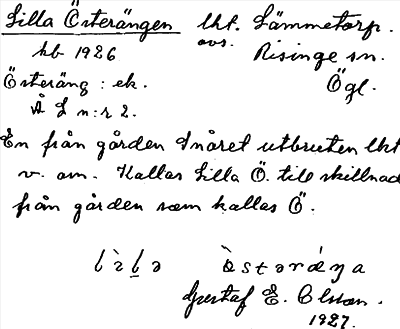 Lilla Österängen lht. Lämmetorp.
avs.
hb 1926 Risinge sn.
Österäng : ek. Ögl.
Å L n:r 2.
En från gården Snåret utbruten lht
v. om. Kallas Lilla Ö. till skillnad
från gården som kallas Ö.
östəräŋa
Gustaf E. Olsson.
1927.